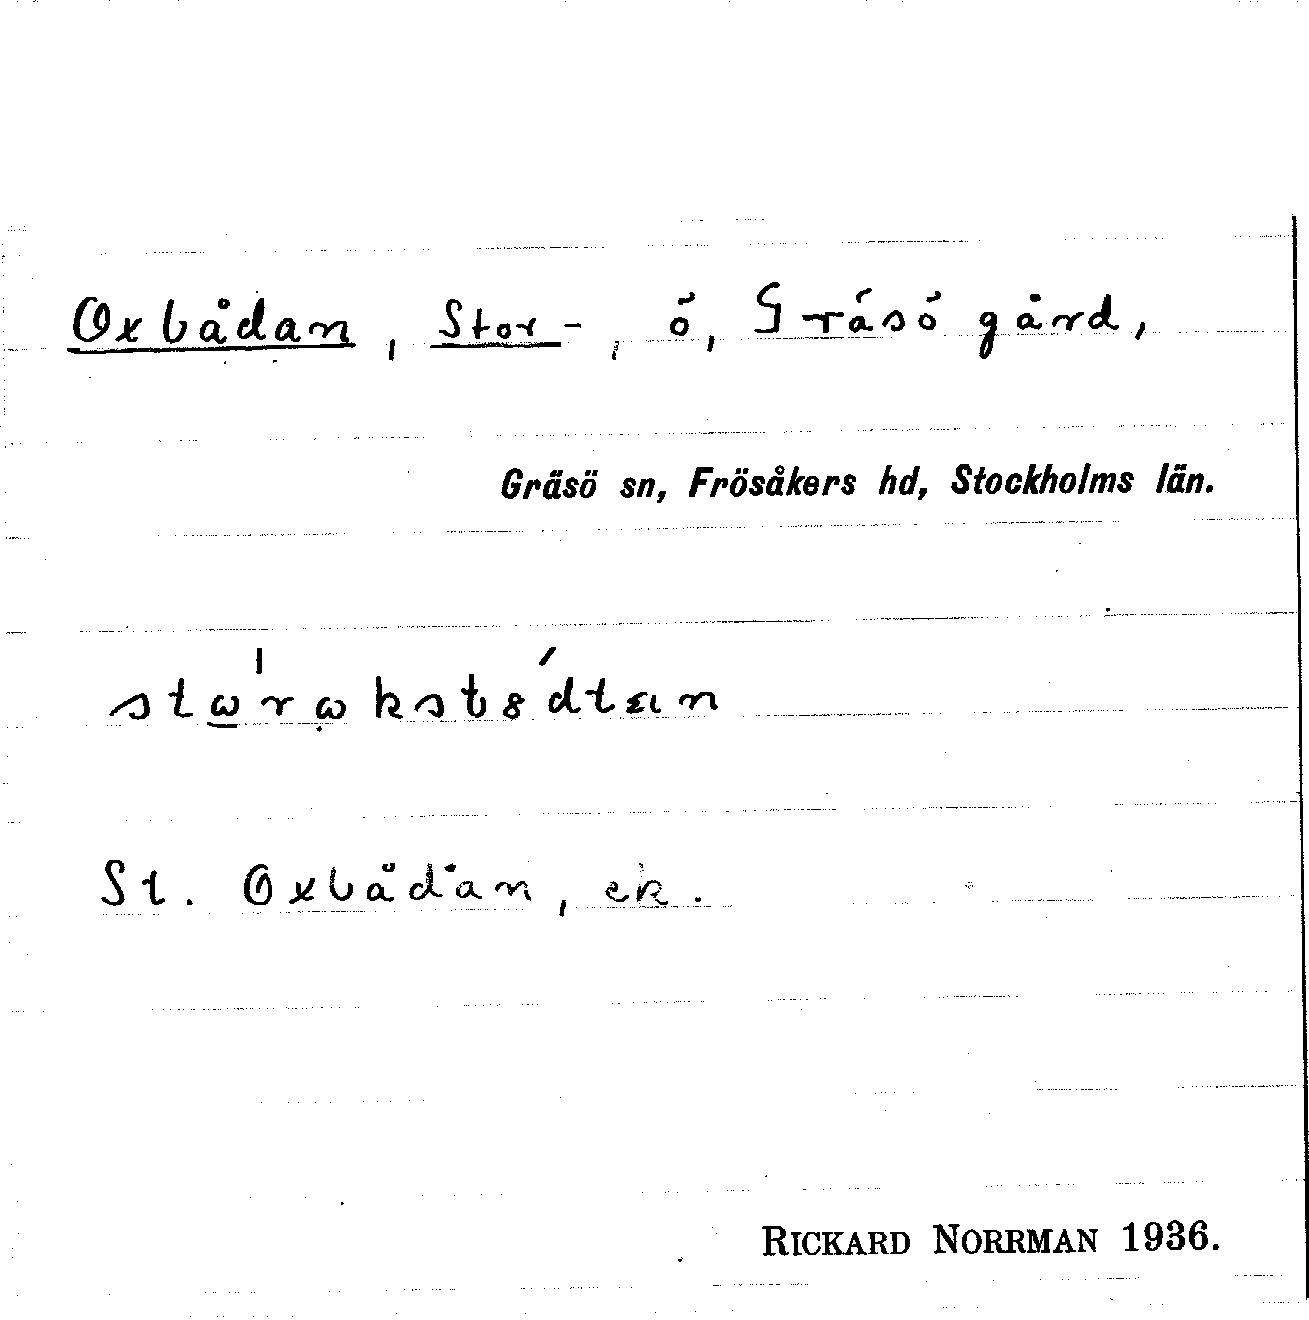 Oxbådan, Stor-, ö, Gräsö gård,
Gräsö sn, Frösåkers hd, Stockholms län.
St. Oxbådan, ek.
RICKARD NORRMAN 1936.